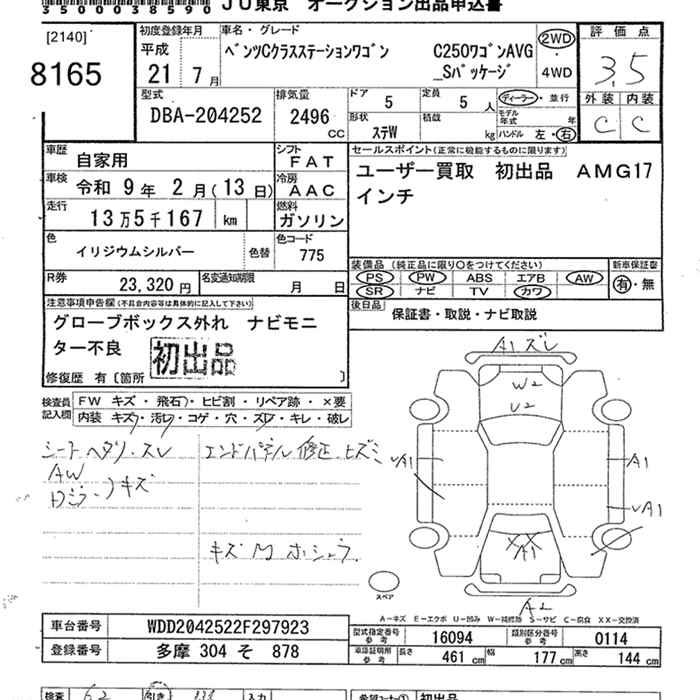 3500038590 JU東京 オークション出品申込書
[2140]
8165
初度登録年月
平成
21 7月
車名・グレード
ベンツCクラスステーションワゴン C250ワゴンAVG
_Sパッケージ
2WD
4WD
評価点
3.5
外装 内装
C C
型式
DBA-204252
排気量
2496 CC
ドア 5
定員 5人
形状 ステW
積載 kg
ディーラー・並行
モデル年式 年
ハンドル 左・右
車歴 自家用
シフト FAT
車検 令和 9年 2月(13日)
冷房 AAC
走行 13万5千167 km
燃料 ガソリン
色 イリジウムシルバー 色替
色コード 775
R券 23,320円
名変通知期限 月 日
セールスポイント(正常に機能するものに限ります)
ユーザー買取 初出品 AMG17
インチ
装備品(純正品に限り○をつけてください)
PS PW ABS エアB AW
SR ナビ TV カワ
新車保証書
有・無
後日品 保証書・取説・ナビ取説
注意事項申告欄(不具合内容等は具体的に記入して下さい)
グローブボックス外れ ナビモニ
ター不良 初出品
修復歴 有〔箇所 〕
検査員記入欄
FW キズ・飛石・ヒビ割・リペア跡・×要
内装 キズ・汚レ・コゲ・穴・スレ・キレ・破レ
シートヘタリ・スレ
AW
Dミラ キズ
エンドパネル修正、ヒズミ
A1ズレ
W2
U2
A1
A1
A1
XX
A2
スペア
A-キズ E-エクボ U-凹み W-補修跡 S-サビ C-腐食 XX-交換済
車台番号 WDD2042522F297923
登録番号 多摩 304 そ 878
型式指定番号 参考 16094
類別区分番号 参考 0114
車庫証明用 参考 長さ 461cm 幅 177cm 高さ 144cm
検査
入力
初出品